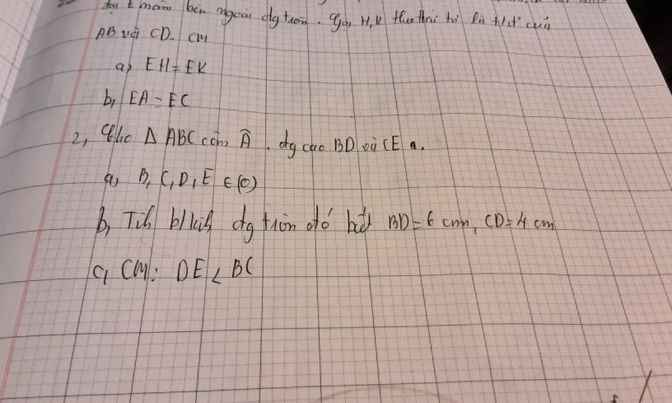 E nằm bên ngoài đg tròn. Gọi H, K thứ tự là t/đ của
AB và CD. CM
a, EH = EK
b, EA = EC
2, Cho Δ ABC cân Â. đg cao BD và CE
a, B, C, D, E ∈ (O)
b, Tính b/kính đg tròn đó biết BD = 6 cm, CD = 4 cm
c, CM: DE < BC